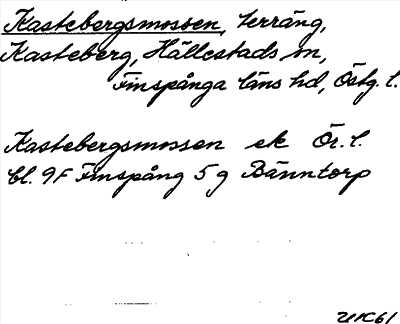 Kastebergsmossen, terräng,
Kasteberg, Hällestads sn,
Finspånga läns hd, Östg. l.
Kastebergsmossen ek Ör. l.
bl. 9F Finspång 5 g Bänntorp
UK61